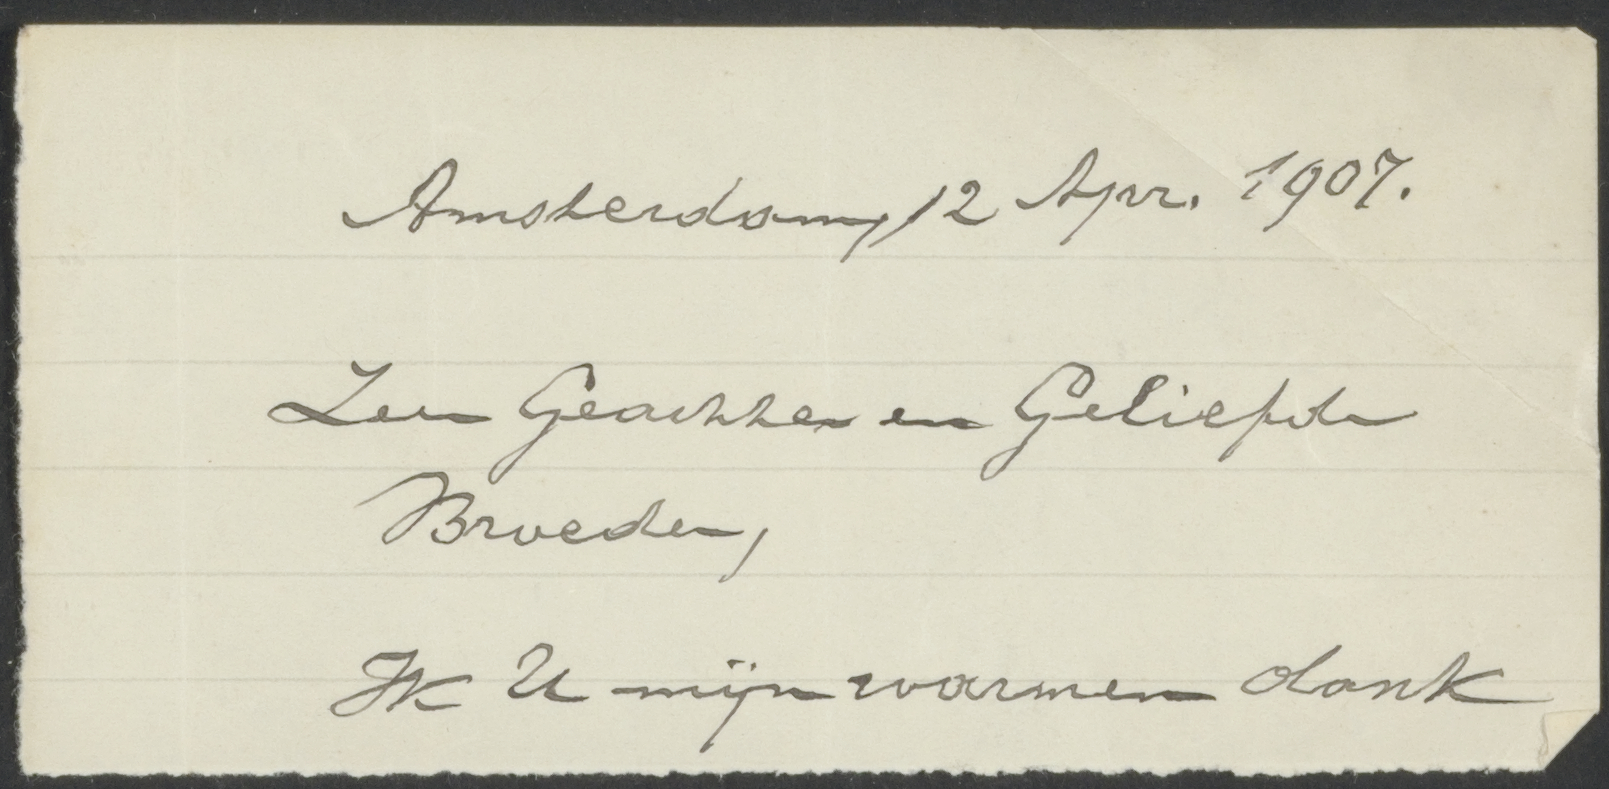 Amsterdam, 12 Apr. 1907.
Zeer Geachte en Geliefde
Broeder,
Ik U mijn warmen dank